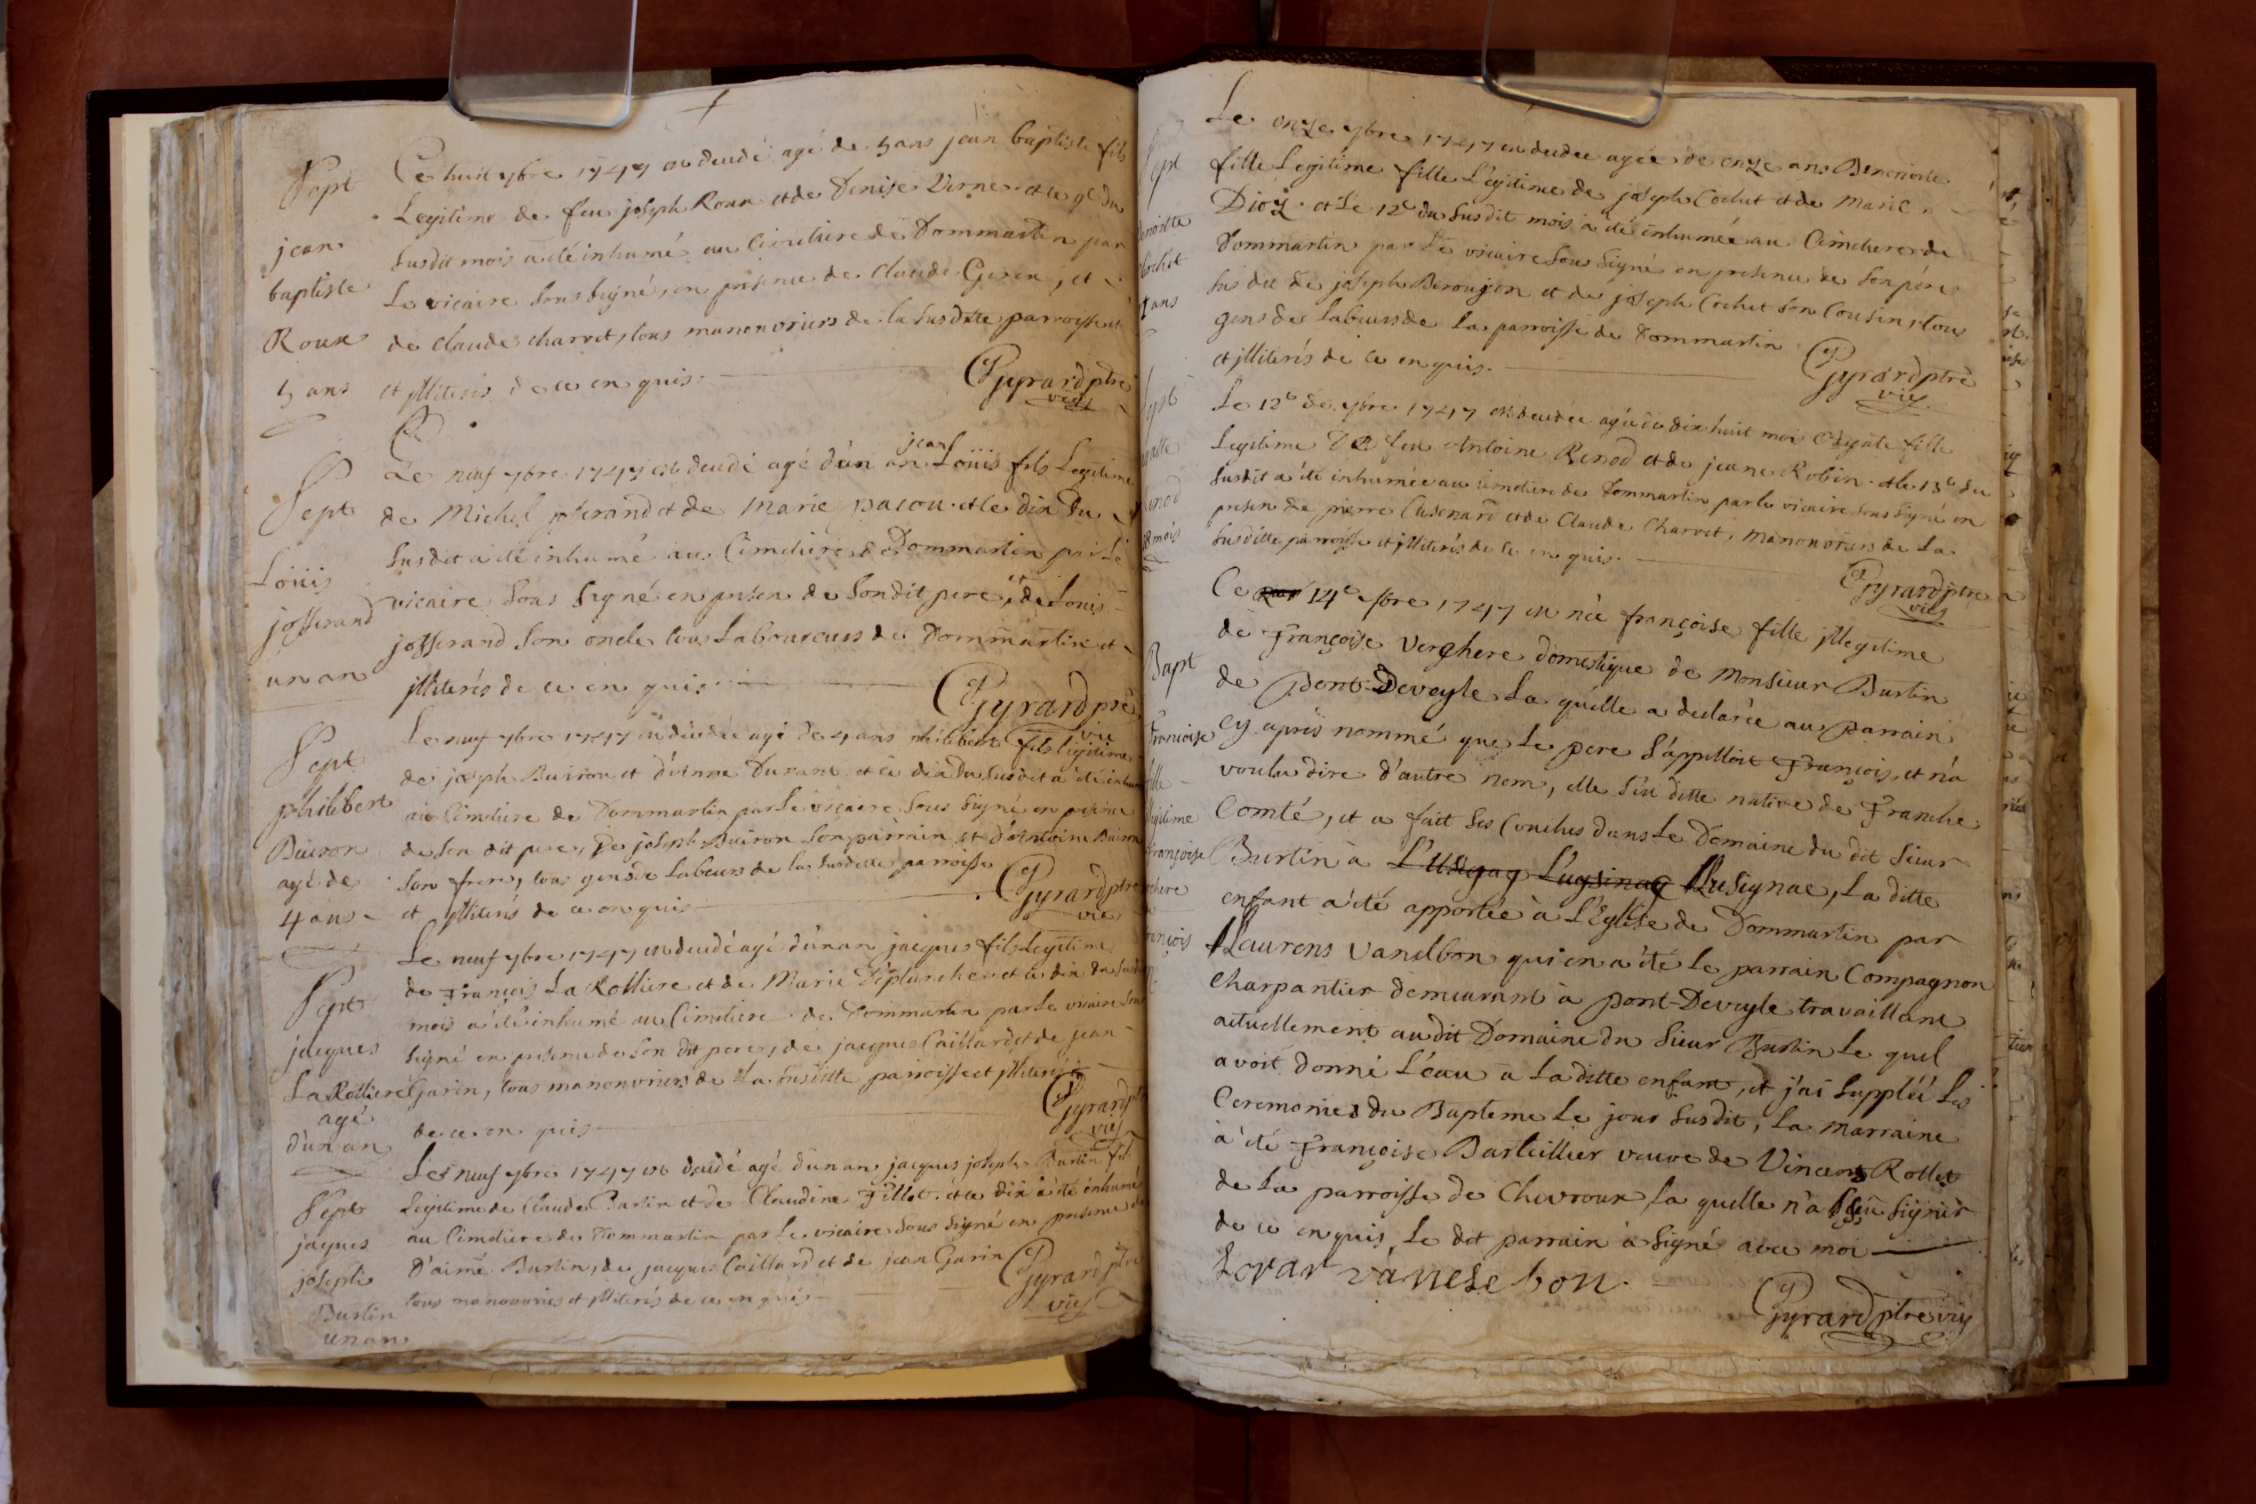 Sept
jean
baptiste
Roux
5 ans
Ce huit 7bre 1747 est decedé agé de 5 ans jean baptiste fils
Legitime de feu joseph Roux et de Denise Verne et le 9e du
susdit mois a été inhumé au Cimetiere de Dommartin par
Le vicaire sous signé, en presence de claude Geren, et
de claude charvet, tous manouvriers de la susditte parroisse
et jlliterés de ce en quis.
Gyrard ptre
vic
Sept
Loüis
josserand
un an
Le neuf 7bre 1747 est decedé agé d'un an jean Loüis fils Legitime
de Michel josserand et de Marie pacou et le dix du
susdit a été inhumé au Cimetiere de Dommartin par Le
vicaire sous signé en presen de son dit pere, et de Louis
josserand son oncle tous Laboureurs de Dommartin et
jlliterés de ce en quis.
Gyrard ptre
vic
Sept
philibert
Buiron
agé de
4 ans
Le neuf 7bre 1747 est decedé agé de 4 ans philibert fils legitime
de joseph Buiron et d'étienne Durant et le dix du susdit a été inhumé
au Cimetiere de Dommartin par Le vicaire sous signé en presence
de son dit pere, De joseph Buiron son parrain et d'antoine Buiron
son frere, tous gens de Labeurs de la susditte parroisse
et jlliterés de ce en quis
Gyrard ptre
vic
Sept
jacques
La Rolliere
agé
d'un an
Le neuf 7bre 1747 est decedé agé d'un an jacques fils Legitime
de François La Rolliere et de Marie Déplanche et le dix du susdit
mois a été inhumé au Cimetiere de Dommartin par Le vicaire sous
signé en presence de son dit pere, de jacques Caillard et de jean
Garin, tous manouvriers de La susditte parroisse et jlliterés
de ce en quis
Gyrard ptre
vic
Sept
jaques
joseph
Burtin
un an
Le neuf 7bre 1747 est decedé agé d'un an jacques joseph Burtin fils
Legitime de Claude Burtin et de Claudine Fillet et le dix a été inhumé
au Cimetiere de Dommartin par Le vicaire sous signé en presence
D'aimé Burtin, de jacques Caillard et de jean Garin
tous manouvriers et jlliterés de ce en quis
Gyrard ptre
vic
Le onze 7bre 1747 est decedée agée de onze ans Benenoiste
fille Legitime fille Légitime de joseph Cochet et de Marie
Dioz et Le 12e du susdit mois a été inhumée au Cimetiere de
Dommartin par Le vicaire sous signé en presence de son pére
susdit de joseph Berougon et de joseph Cochet son Cousin, tous
gens de Labeurs de La parroisse de Dommartin
et jlliterés de ce en quis.
Gyrard ptre
vic
Le 12e de 7bre 1747 est decedée agée de dix huit moi fille
Legitime De feu Antoine Renod et de jeane Robin et le 13e du
susdit a été inhumée au cimetiere de Dommartin par le vicaire sous signé en
presen de pierre Chenard et de Claude Charvet, manouvriers de La
susditte parroisse et jlliterés de ce en quis.
Gyrard ptre
vic
Bapt
Françoise
Ce 14e 7bre 1747 est née françoise fille jllegitime
de Françoise Verghere domestique de Monsieur Burtin
de pont-Deveyle La quelle a declarée au parrain
cy aprés nommé que Le pere s'appelloit François, et n'a
voulu dire d'autre nom, elle s'est ditte native de Franche
Comté, et a fait ses Couches dans Le Domaine du dit sieur
Burtin à L'Usignac, La ditte
enfant a été apportée à L'Eglise de Dommartin par
Laurens Vanelbon qui en a été Le parrain Compagnon
Charpantier demeurant à pont-Deveyle travaillant
actuellement au dit Domaine du Sieur Burtin Le quel
avoit donné L'eau a La ditte enfant, et j'ai suppléé Les
Ceremonies du Bapteme Le jour susdit, La marraine
a été Françoise Barteillier veuve de Vincent Rollet
de La parroisse de Chevroux La quelle n'a sçeu signer
de ce enquis, Le dit parrain a signé avec moi
Lorar vanese bon.
Gyrard ptre vic